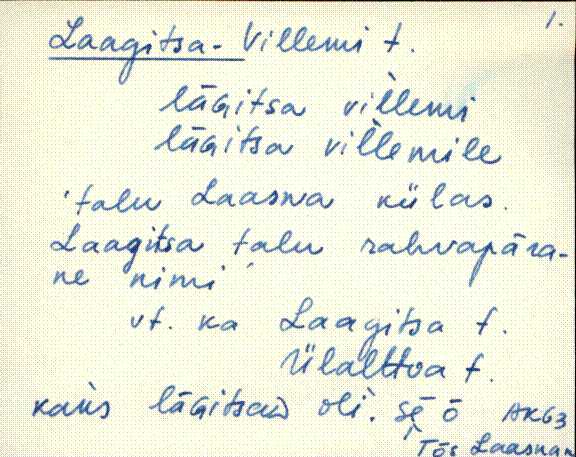 1.
Laagitsa-Villemi t.
lāGitsa villemi
lāGitsa villemile
'talu Laasna külas.
Laagitsa talu rahvapära-
ne nimi'
vt. ka Laagitsa t.
Ülalttoa t.
lāGitsaD oli.
AK63
Tõs Laasnan